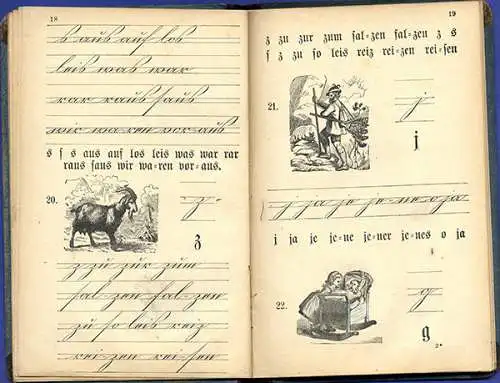 18
s aus auf los
leis was war
rar raus saus
wir wa-ren vor-aus
s ſ s aus auf los leis was war rar
raus ſaus wir wa=ren vor=aus.
20.
z
z
z zu zur zum
sal-zen fal-zen
zu so leis reiz
rei-zen rei-sen
19
z zu zur zum ſal=zen fal=zen z s
ſ z zu ſo leis reiz rei=zen rei=ſen
21.
j
j
j ja je je-ne o ja
j ja je je=ne je=ner je=nes o ja
22.
g
g
2*